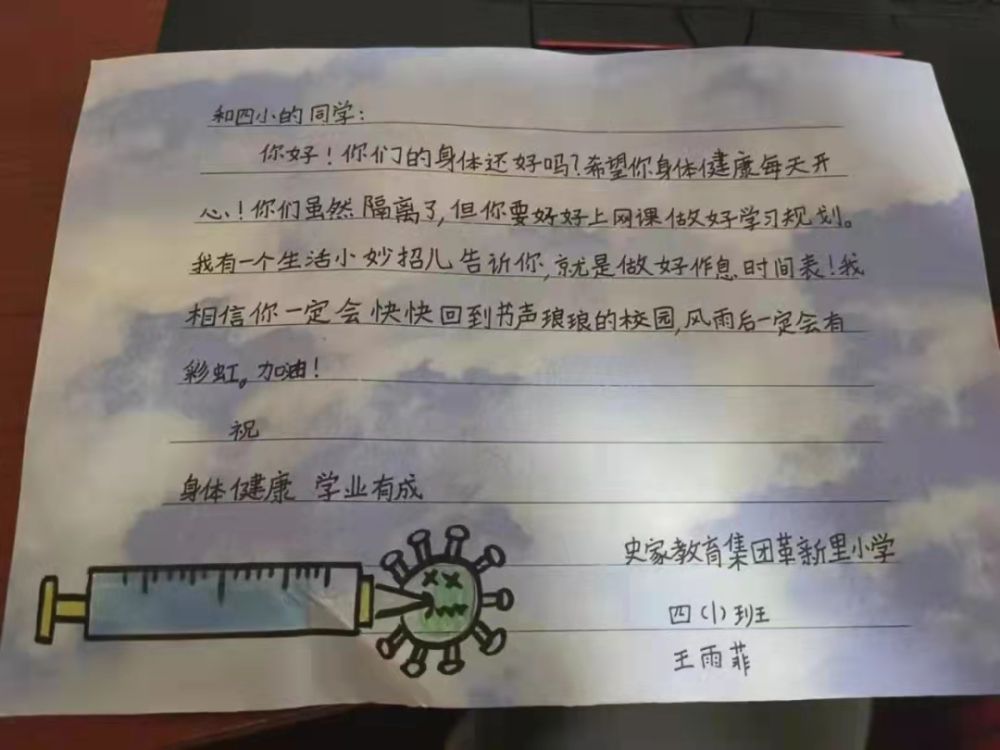 和四小的同学：
你好！你们的身体还好吗？希望你身体健康每天开
心！你们虽然隔离了，但你要好好上网课做好学习规划。
我有一个生活小妙招儿告诉你，就是做好作息时间表！我
相信你一定会快快回到书声琅琅的校园，风雨后一定会有
彩虹。加油！
祝
身体健康 学业有成
史家教育集团革新里小学
四（1）班
王雨菲